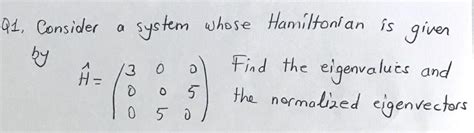 Q1. Consider a system whose Hamiltonian is given
by
Ĥ = (3 0 0) Find the eigenvalues and
0 0 5 the normalized eigenvectors
0 5 0